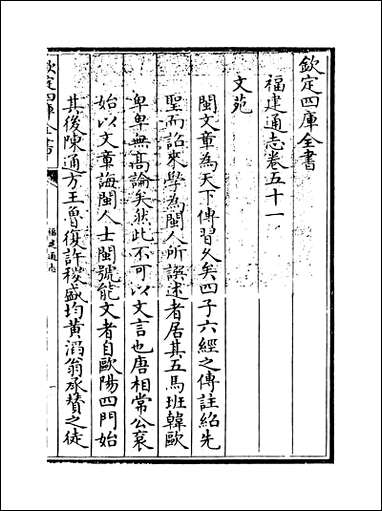 欽定四庫全書
福建通志卷五十一
文苑
閩文章為天下傳習久矣四子六經之傳註紹先
聖而詔來學為閩人所譔述者居其五馬班韓歐
卑卑無髙論矣然此不可以文言也唐相常公衮
始以文章誨閩人士閩號能文者自歐陽四門始
其後陳通方王魯復許稷盛均黄滔翁承贊之徒
欽定四庫全書
福建通志
一